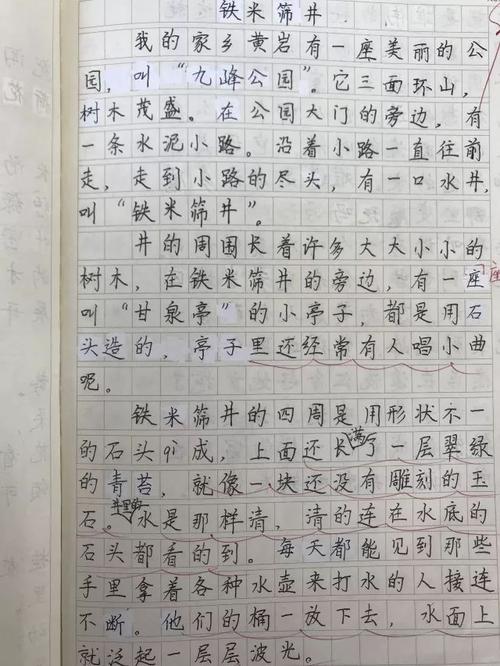 铁米筛井
我的家乡黄岩有一座美丽的公
园，叫“九峰公园”。它三面环山，
树木茂盛。在公园大门的旁边，有
一条水泥小路。沿着小路一直往前
走，走到小路的尽头，有一口水井，
叫“铁米筛井”。
井的周围长着许多大大小小的
树木，在铁米筛井的旁边，有一座
叫“甘泉亭”的小亭子，都是用石
头造的，亭子里还经常有人唱小曲
呢。
铁米筛井的四周是用形状不一
的石头qì成，上面还长满了一层翠绿
的青苔，就像一块还没有雕刻的玉
石。井里的水是那样清，清的连在水底的
石头都看的到。每天都能见到那些
手里拿着各种水壶来打水的人接连
不断。他们的桶一放下去，水面上
就泛起一层层波光。